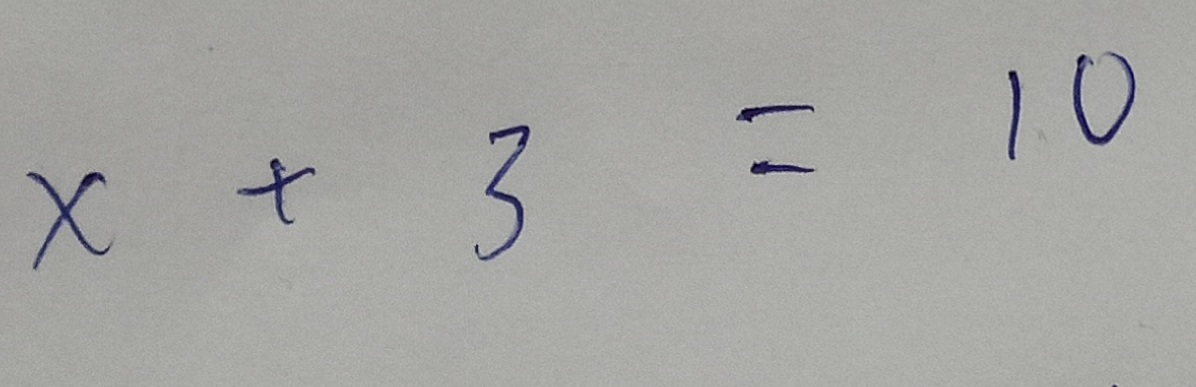 x + 3 = 10